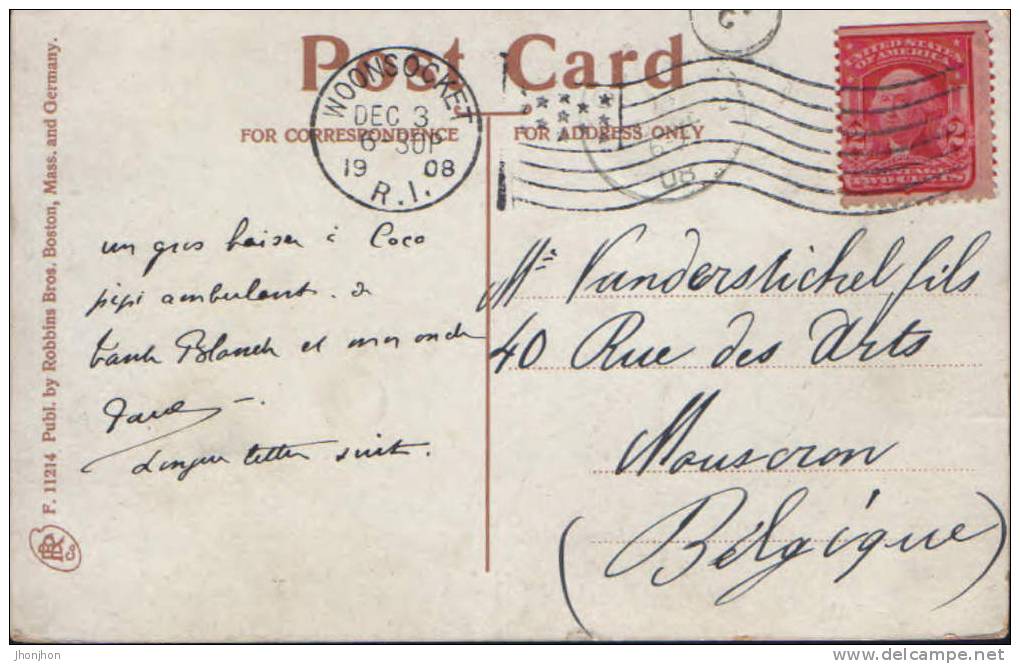 Post Card
FOR CORRESPONDENCE
FOR ADDRESS ONLY
WOONSOCKET
DEC 3
6-30P
19 08
R.I.
08
UNITED STATES
OF AMERICA
2 2
TWO CENTS
un gros baiser à Coco
pipi ambulant. à
tante Blanch et mon oncle
Longue letter suit.
Mr Vanderstichel fils
40 Rue des Arts
Mouscron
(Belgique)
F. 11214 Publ. by Robbins Bros. Boston, Mass. and Germany.
Co
jhonjhon
www.delcampe.net